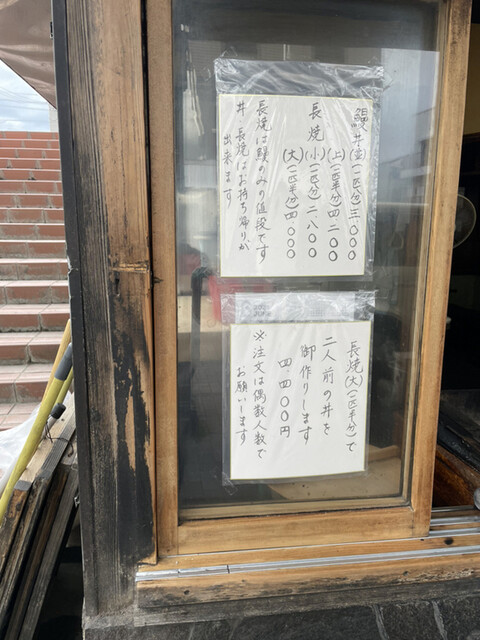 鰻丼(並)(一匹分)三〇〇〇
(上)(一匹半分)四二〇〇
長焼(小)(一匹分)二八〇〇
(大)(一匹半分)四〇〇〇
長焼は鰻のみの値段です
丼、長焼はお持ち帰りが
出来ます
長焼(大)(一匹半分)で
二人前の丼を
御作りします
四.四〇〇円
※注文は偶数人数で
お願いします